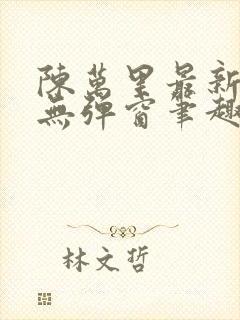 陳萬里最新
無彈窗筆趣
林文哲